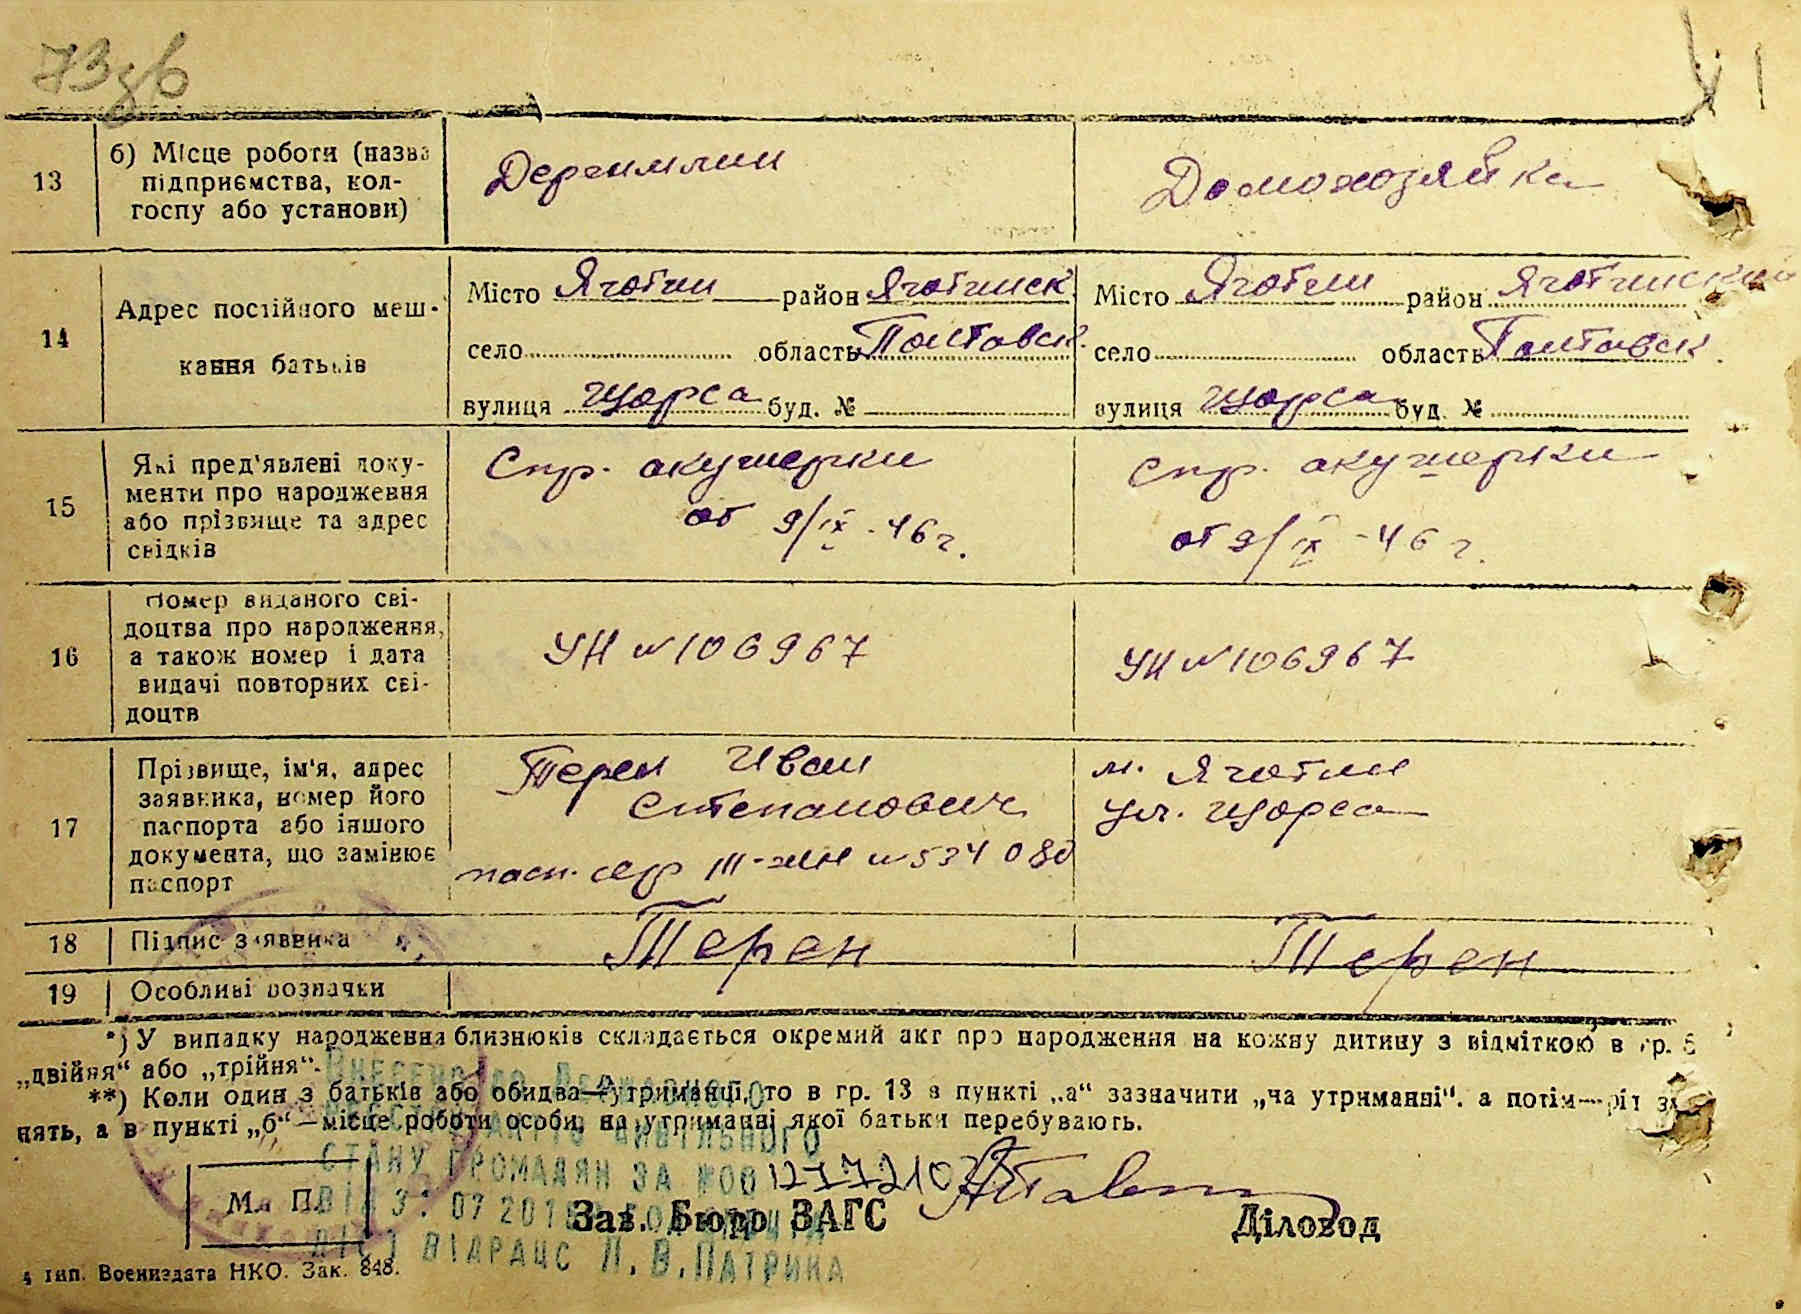 73зв
13
б) Місце роботи (назва
підприємства, кол-
госпу або установи)
Домохозяйка
14
Адрес постійного меш-
кання батьків
Місто Яготин район Яготинск
село область Полтавск.
вулиця Щорса буд. №
Місто Яготин район Яготинский
село область Полтавск.
вулиця Щорса буд. №
15
Які пред'явлені доку-
менти про народження
або прізвище та адрес
свідків
Спр. акушерки
от 9/IX-46 г.
Спр. акушерки
от 9/IX-46 г.
16
Номер виданого сві-
доцтва про народження,
а також номер і дата
видачі повторних сві-
доцтв
УН № 106967
УН № 106967
17
Прізвище, ім'я, адрес
заявника, номер його
паспорта або іншого
документа, що замінює
паспорт
Терен Иван
Степанович
пасп. сер III-ЖН № 534080
м. Яготин
ул. Щорса
18
Підпис заявника
Терен
Терен
19
Особливі позначки
*) У випадку народження близнюків складається окремий акт про народження на кожну дитину з відміткою в гр. 5
„двійня“ або „трійня“.
**) Коли один з батьків або обидва—утриманці, то в гр. 13 в пункті „а“ зазначити „на утриманні“, а потім—рід за-
нять, а в пункті „б“—місце роботи особи, на утриманні якої батьки перебувають.
Внесено до Державного
реєстру актів цивільного
стану громадян за №00
М. П.
Зав. Бюро ЗАГС
Діловод
відрацс Л. В. Патрина
4 тип. Воениздата НКО. Зак. 848.